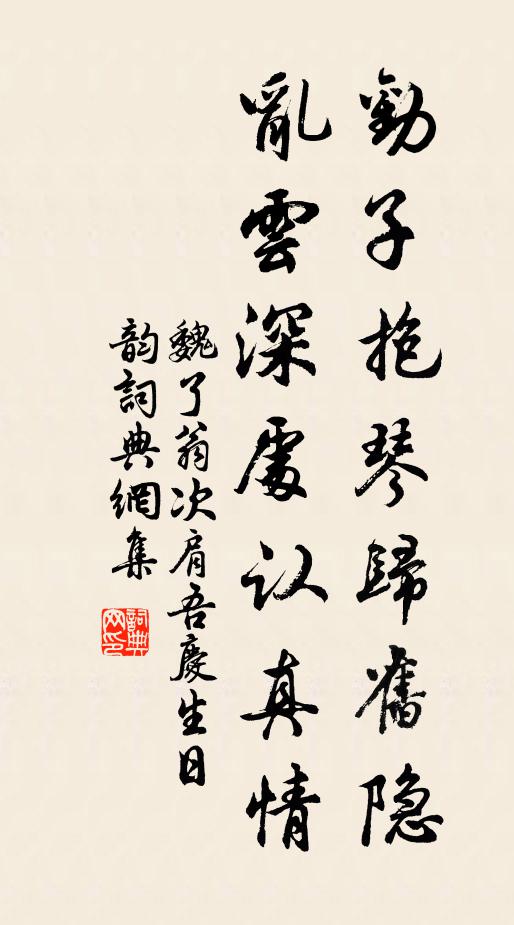 勸子抱琴歸舊隐
亂雲深處认真情
魏了翁次肩吾慶生日
韵詞典網集
詞典网印